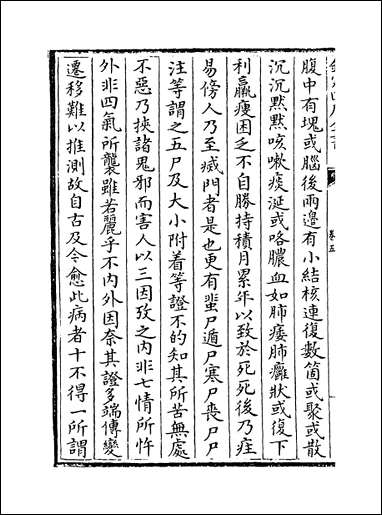 腹中有塊或腦後兩邊有小結核連復數箇或聚或散
沉沉默默咳嗽痰涎或咯膿血如肺痿肺癰狀或復下
利羸瘦困乏不自勝持積月累年以致於死死後乃疰
易傍人乃至滅門者是也更有蜚尸遁尸寒尸喪尸尸
注等謂之五尸及大小附着等證不的知其所苦無處
不惡乃挾諸鬼邪而害人以三因攷之内非七情所忤
外非四氣所襲雖若麗乎不内外因奈其證多端傳變
遷移難以推測故自古及今愈此病者十不得一所謂